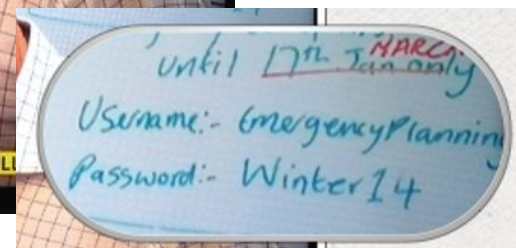 MARCH
until 17th Jan only
Username:- EmergencyPlanning
Password:- Winter14
LL